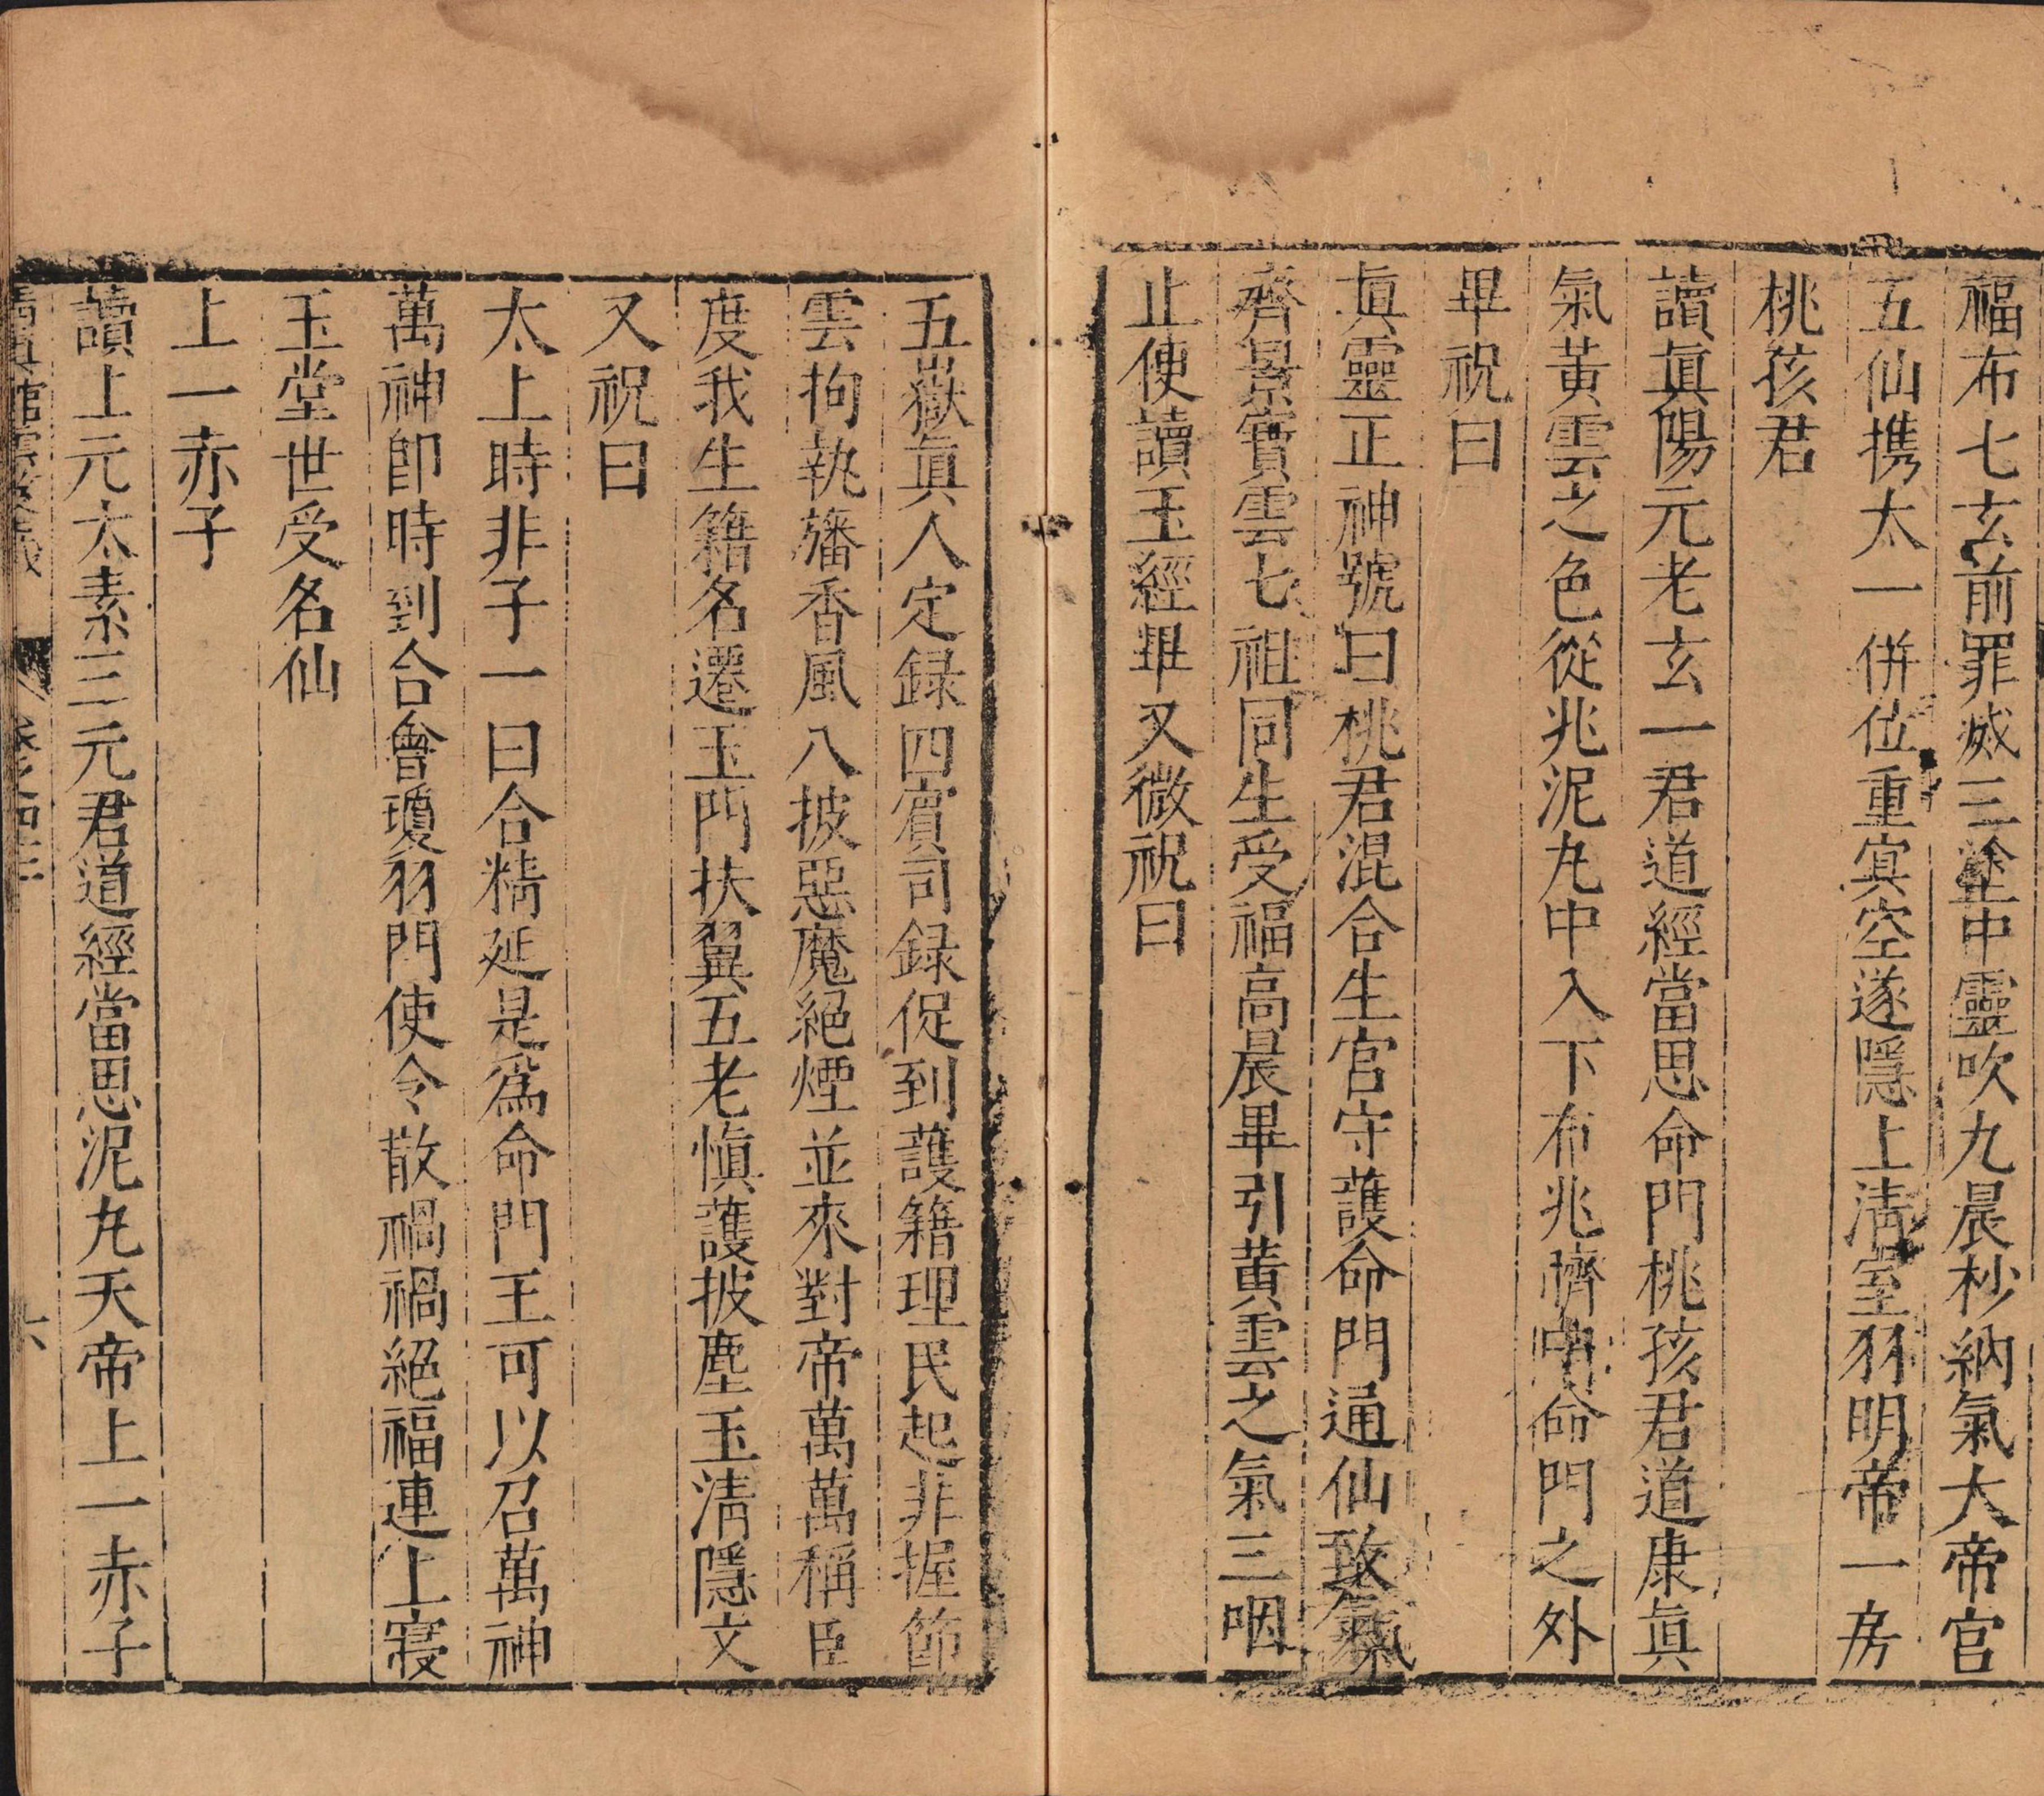 福布七玄前罪滅三塗中靈吹九晨杪納氣大帝宮
五仙携太一併位重冥空遂隱上清室羽明帝一房
桃孩君
讀眞陽元老玄一君道經當思命門桃孩君道康眞
氣黃雲之色從兆泥丸中入下布兆臍中命門之外
畢祝曰
眞靈正神號曰桃君混合生宮守護命門通仙致氣
齊景寶雲七祖同生受福高晨畢引黃雲之氣三咽
止使讀玉經畢又微祝曰
五嶽眞人定録四賓司録促到護籍理民起非握節
雲拘執旛香風八披惡魔絕煙並來對帝萬萬稱臣
度我生籍名遷玉門扶翼五老愼護披塵玉清隱文
又祝曰
太上時非子一曰合精延是爲命門王可以召萬神
萬神卽時到合會瓊羽門使令散禍禍絕福連上寢
玉堂世受名仙
上一赤子
讀上元太素三元君道經當思泥丸天帝上一赤子
六